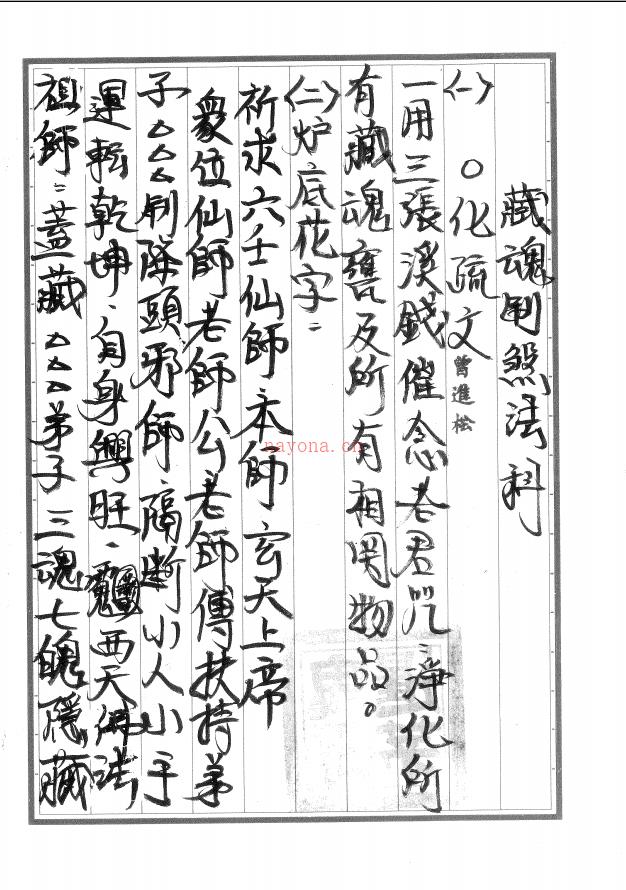 藏魂制煞法科
㈠ ○化疏文 曾進松
一用三張溪錢催念老君咒:淨化所
有藏魂甕及所有相関物品。
㈡炉底花字:
祈求六壬仙師、本師、玄天上帝
衆位仙師老師公老師傅扶持弟
子△△△制除頭邪師、隔断小人小手
運転乾坤、自身興旺、西天佛法
祖師:蓋藏△△△弟子三魂七魄隱藏
nayona.cn